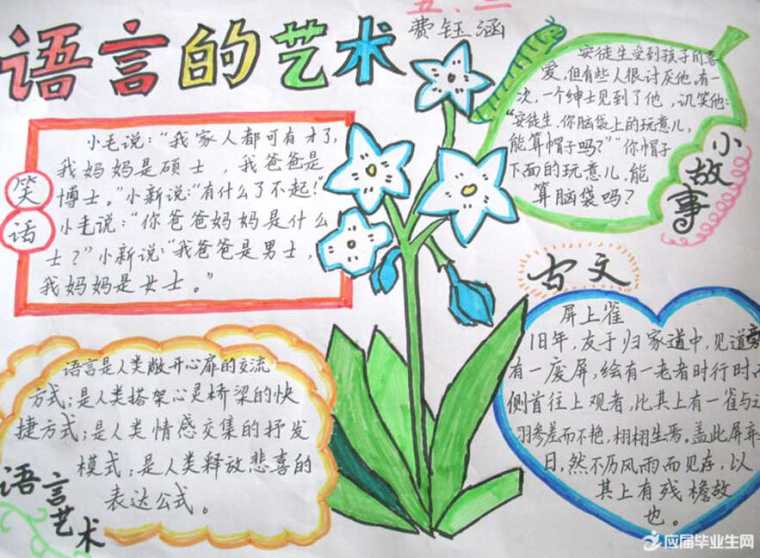 语言的艺术
五、二
费钰涵
笑话
小毛说：“我家人都可有才了，
我妈妈是硕士，我爸爸是
博士。”小新说：“有什么了不起！”
小毛说：“你爸爸妈妈是什么
士？”小新说：“我爸爸是男士，
我妈妈是女士。”
安徒生受到孩子的喜
爱，但有些人很讨厌他。有一
次，一个绅士见到了他，讥笑他：
“安徒生，你脑袋上的玩意儿，
能算帽子吗？”“你帽子
下面的玩意儿，能
算脑袋吗？
小故事
语言是人类敞开心扉的交流
方式；是人类搭架心灵桥梁的快
捷方式；是人类情感交集的抒发
模式；是人类释放悲喜的
表达公式。
语言艺术
古文
屏上雀
旧年，友于归家道中，见道
有一废屏，绘有一老者时行时
侧首往上观者，比其上有一雀与
羽参差而不艳，栩栩生焉，盖此屏弃
日，然不历风雨而见存，以
其上有残檐故
也。
应届毕业生网